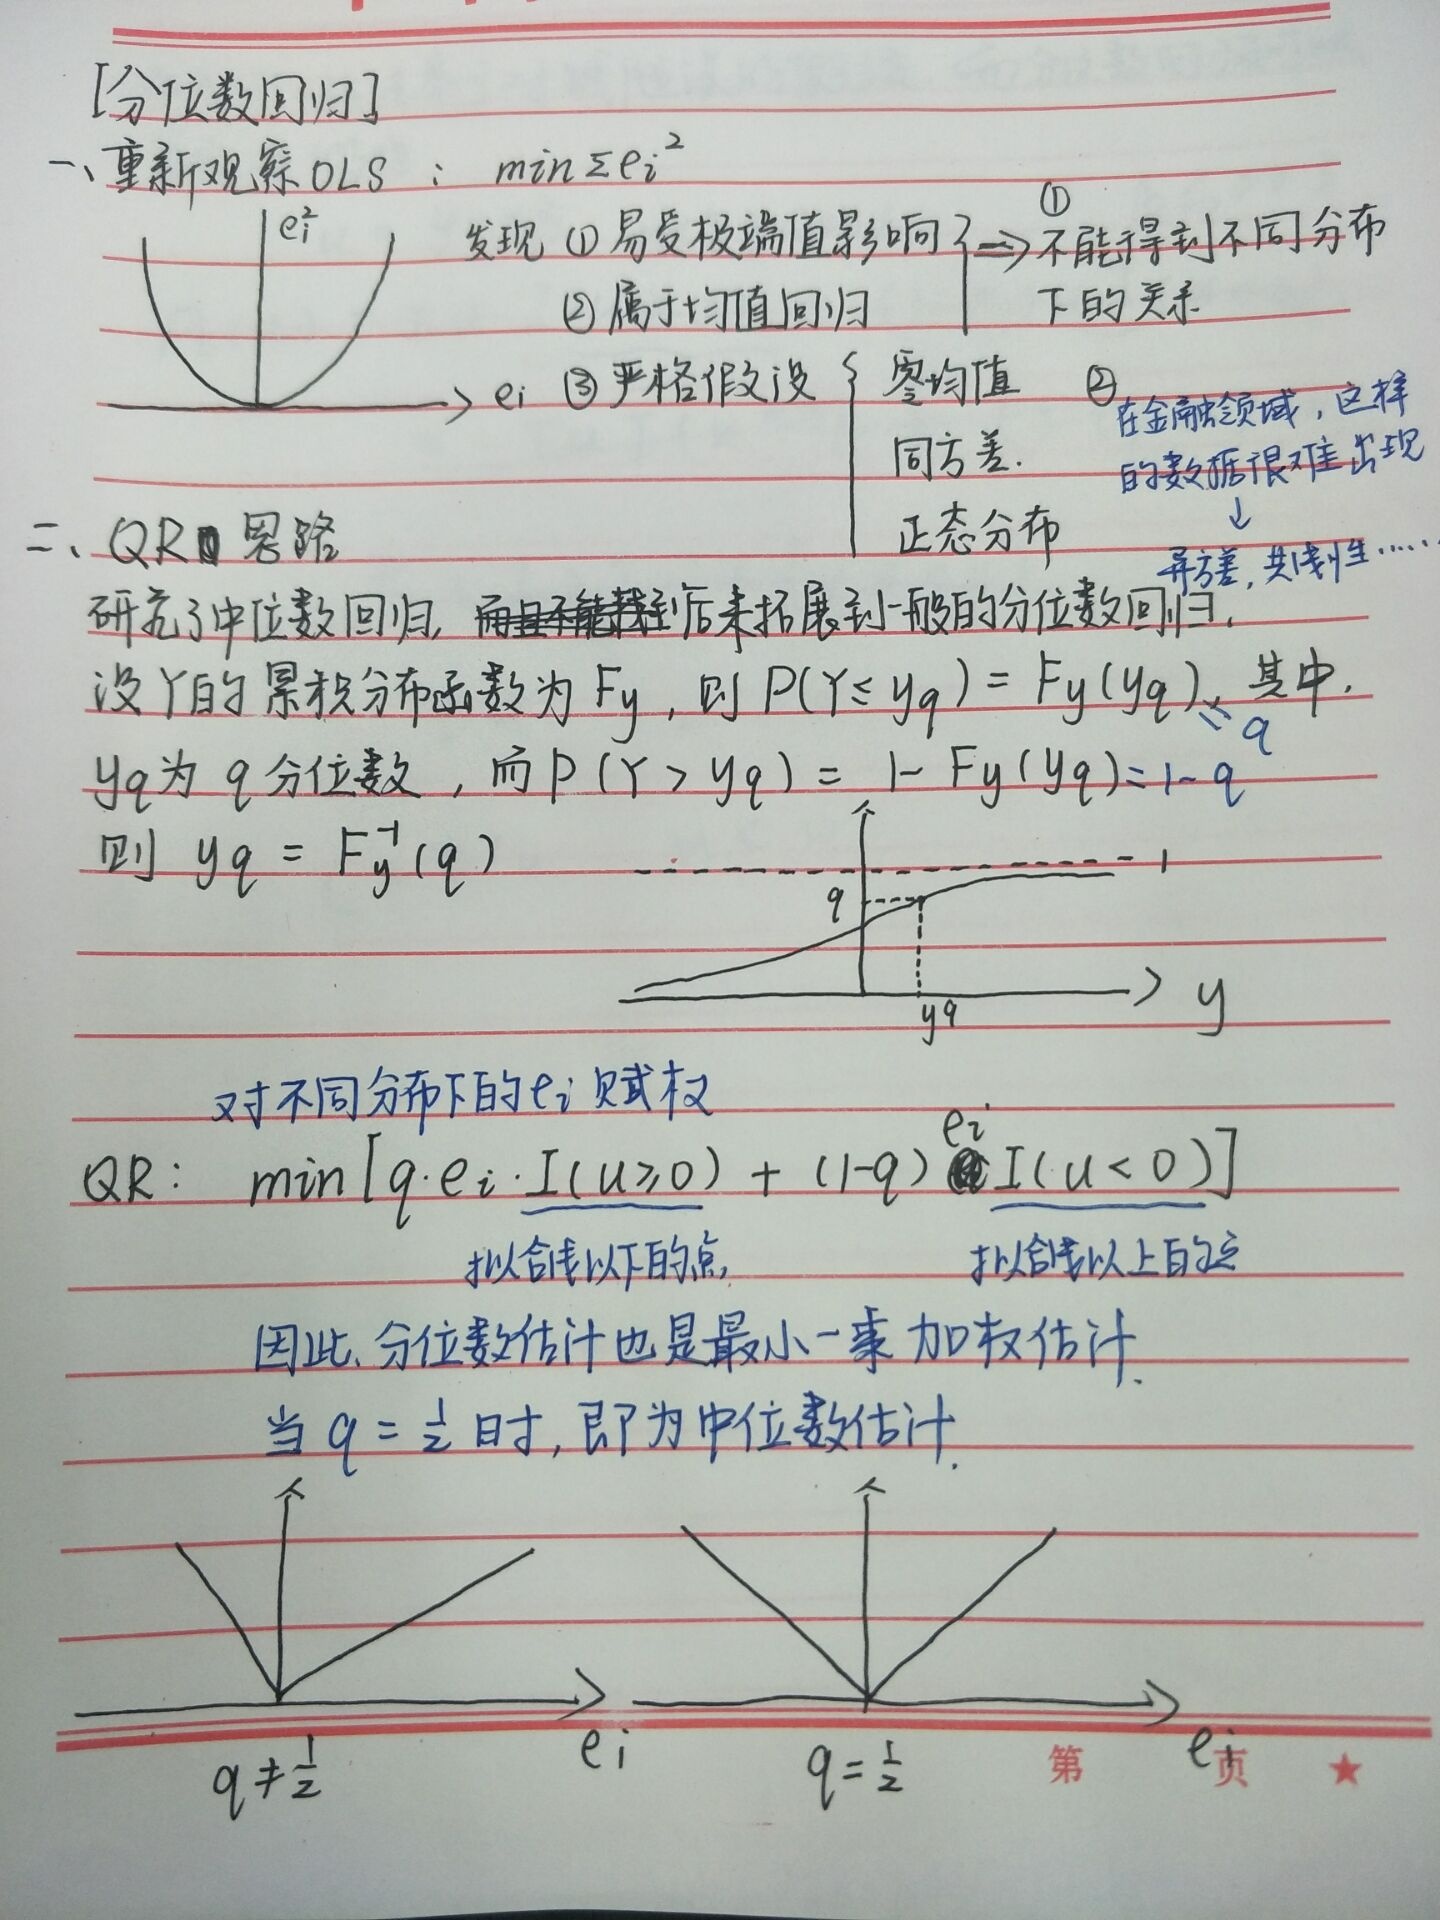 [分位数回归]
一、重新观察OLS : min Σei²
ei²
ei
发现 ① 易受极端值影响
② 属于均值回归
⇒ ① 不能得到不同分布
下的关系
③ 严格假设 { 零均值
同方差.
正态分布
② 在金融领域，这样
的数据很难出现
↓
异方差，共线性……
二、QR 思路
研究了中位数回归, 后来拓展到一般的分位数回归.
设Y的累积分布函数为 Fy, 则 P(Y≤yq) = Fy(yq) = q, 其中.
yq为 q 分位数, 而 P(Y > yq) = 1- Fy(yq) = 1-q
则 yq = Fy⁻¹(q)
1
q
yq
y
对不同分布下的ei赋权
QR: min[q·ei·I(u≥0) + (1-q) ei I(u<0)]
拟合线以下的点, 拟合线以上的点
因此、分位数估计也是最小一乘加权估计.
当 q = 1/2 时, 即为中位数估计.
ei
q ≠ 1/2
ei
q = 1/2
第 页 ★